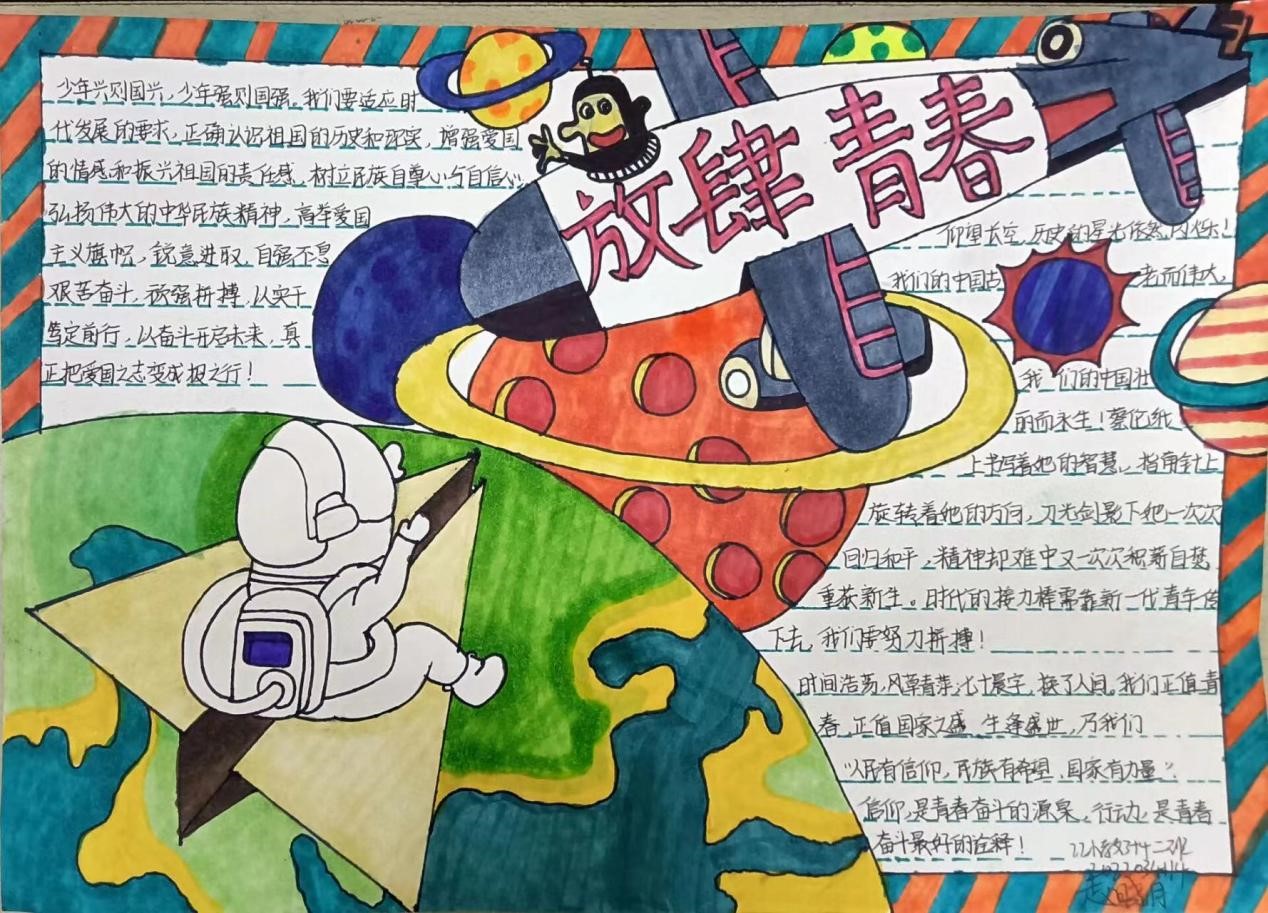 放肆青春
少年兴则国兴,少年强则国强。我们要适应时
代发展的要求,正确认识祖国的历史和现实,增强爱国
的情感和振兴祖国的责任感,树立民族自尊心与自信心
弘扬伟大的中华民族精神,高举爱国
主义旗帜,锐意进取,自强不息
艰苦奋斗,顽强拼搏,从实干
笃定前行,以奋斗开启未来,真
正把爱国之志变成报之行!
仰望太空,历史的星光依然闪烁!
我们的中国古老而伟大,
我们的中国壮
丽而永生!蔡伦纸
上书写着她的智慧,指南针上
旋转着她的方向,刀光剑影下她一次次
回归和平,精神却难中又一次次积新自梦
重获新生。时代的接力棒需靠新一代青年传
下去,我们要努力拼搏!
时间浩荡,风草青萍,七十晨字,换了人间。我们正值青
春,正值国家之盛,生逢盛世,乃我们
"人民有信仰,民族有希望,国家有力量".
信仰,是青春奋斗的源泉,行动,是青春
奋斗最好的诠释!